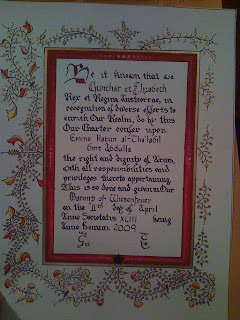 Be it known that we
Gunthar et Elizabeth
Rex et Regina Ansteorrae, in
recognition of diverse efforts to
enrich Our Realm, do by this
Our Charter confer upon
bint Abdulla
the right and dignity of Arms,
with all responsibilities and
privileges thereto appertaining.
This is so done and given in Our
Barony of Wiesenfeuer
on the 11th day of April
Anno Societatis XLIII being
Anno Domini 2009